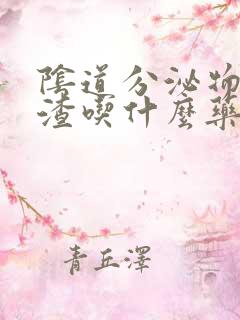 陰道分泌物
渣喫什麼藥
青丘澤